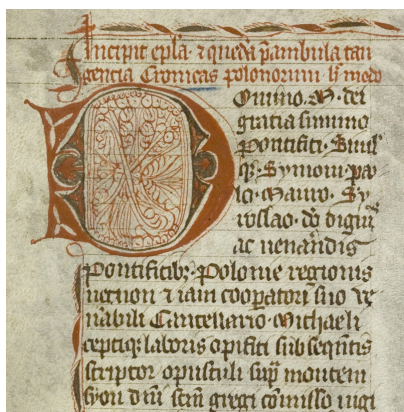 Incipit epla ⁊ queda p̄ambula tan
gentia Cronicas polonorum
Domino · M · dei
gratia summo
pontifici · Simul
q3 · Symoni · pa
lo · Mauro · Sy
roslao · do digiis
ac uenandis
pontificib3 · Polonie regionis
necnon ⁊ iam coopatori suo ve
nabili Cancellario · Michaeli
ceptiq3 laboris opifici subseqntis
scriptor opusculi supͣ montem
syon dnī scm̄ gregi comisso uigi